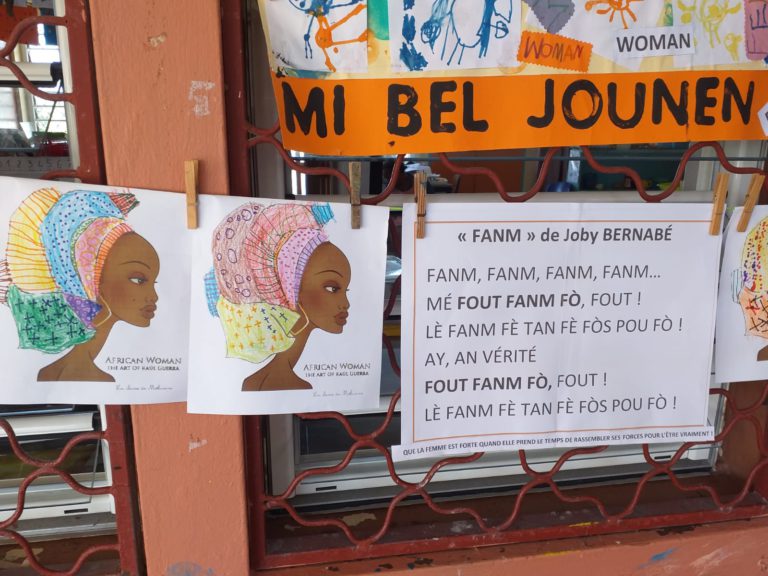 WOMAN
WOMAN
MI BEL JOUNEN
AFRICAN WOMAN
THE ART OF RAUL GUERRA
AFRICAN WOMAN
THE ART OF RAUL GUERRA
« FANM » de Joby BERNABÉ
FANM, FANM, FANM, FANM...
MÉ FOUT FANM FÒ, FOUT !
LÈ FANM FÈ TAN FÈ FÒS POU FÒ !
AY, AN VÉRITÉ
FOUT FANM FÒ, FOUT !
LÈ FANM FÈ TAN FÈ FÒS POU FÒ !
QUE LA FEMME EST FORTE QUAND ELLE PREND LE TEMPS DE RASSEMBLER SES FORCES POUR L'ÊTRE VRAIMENT !